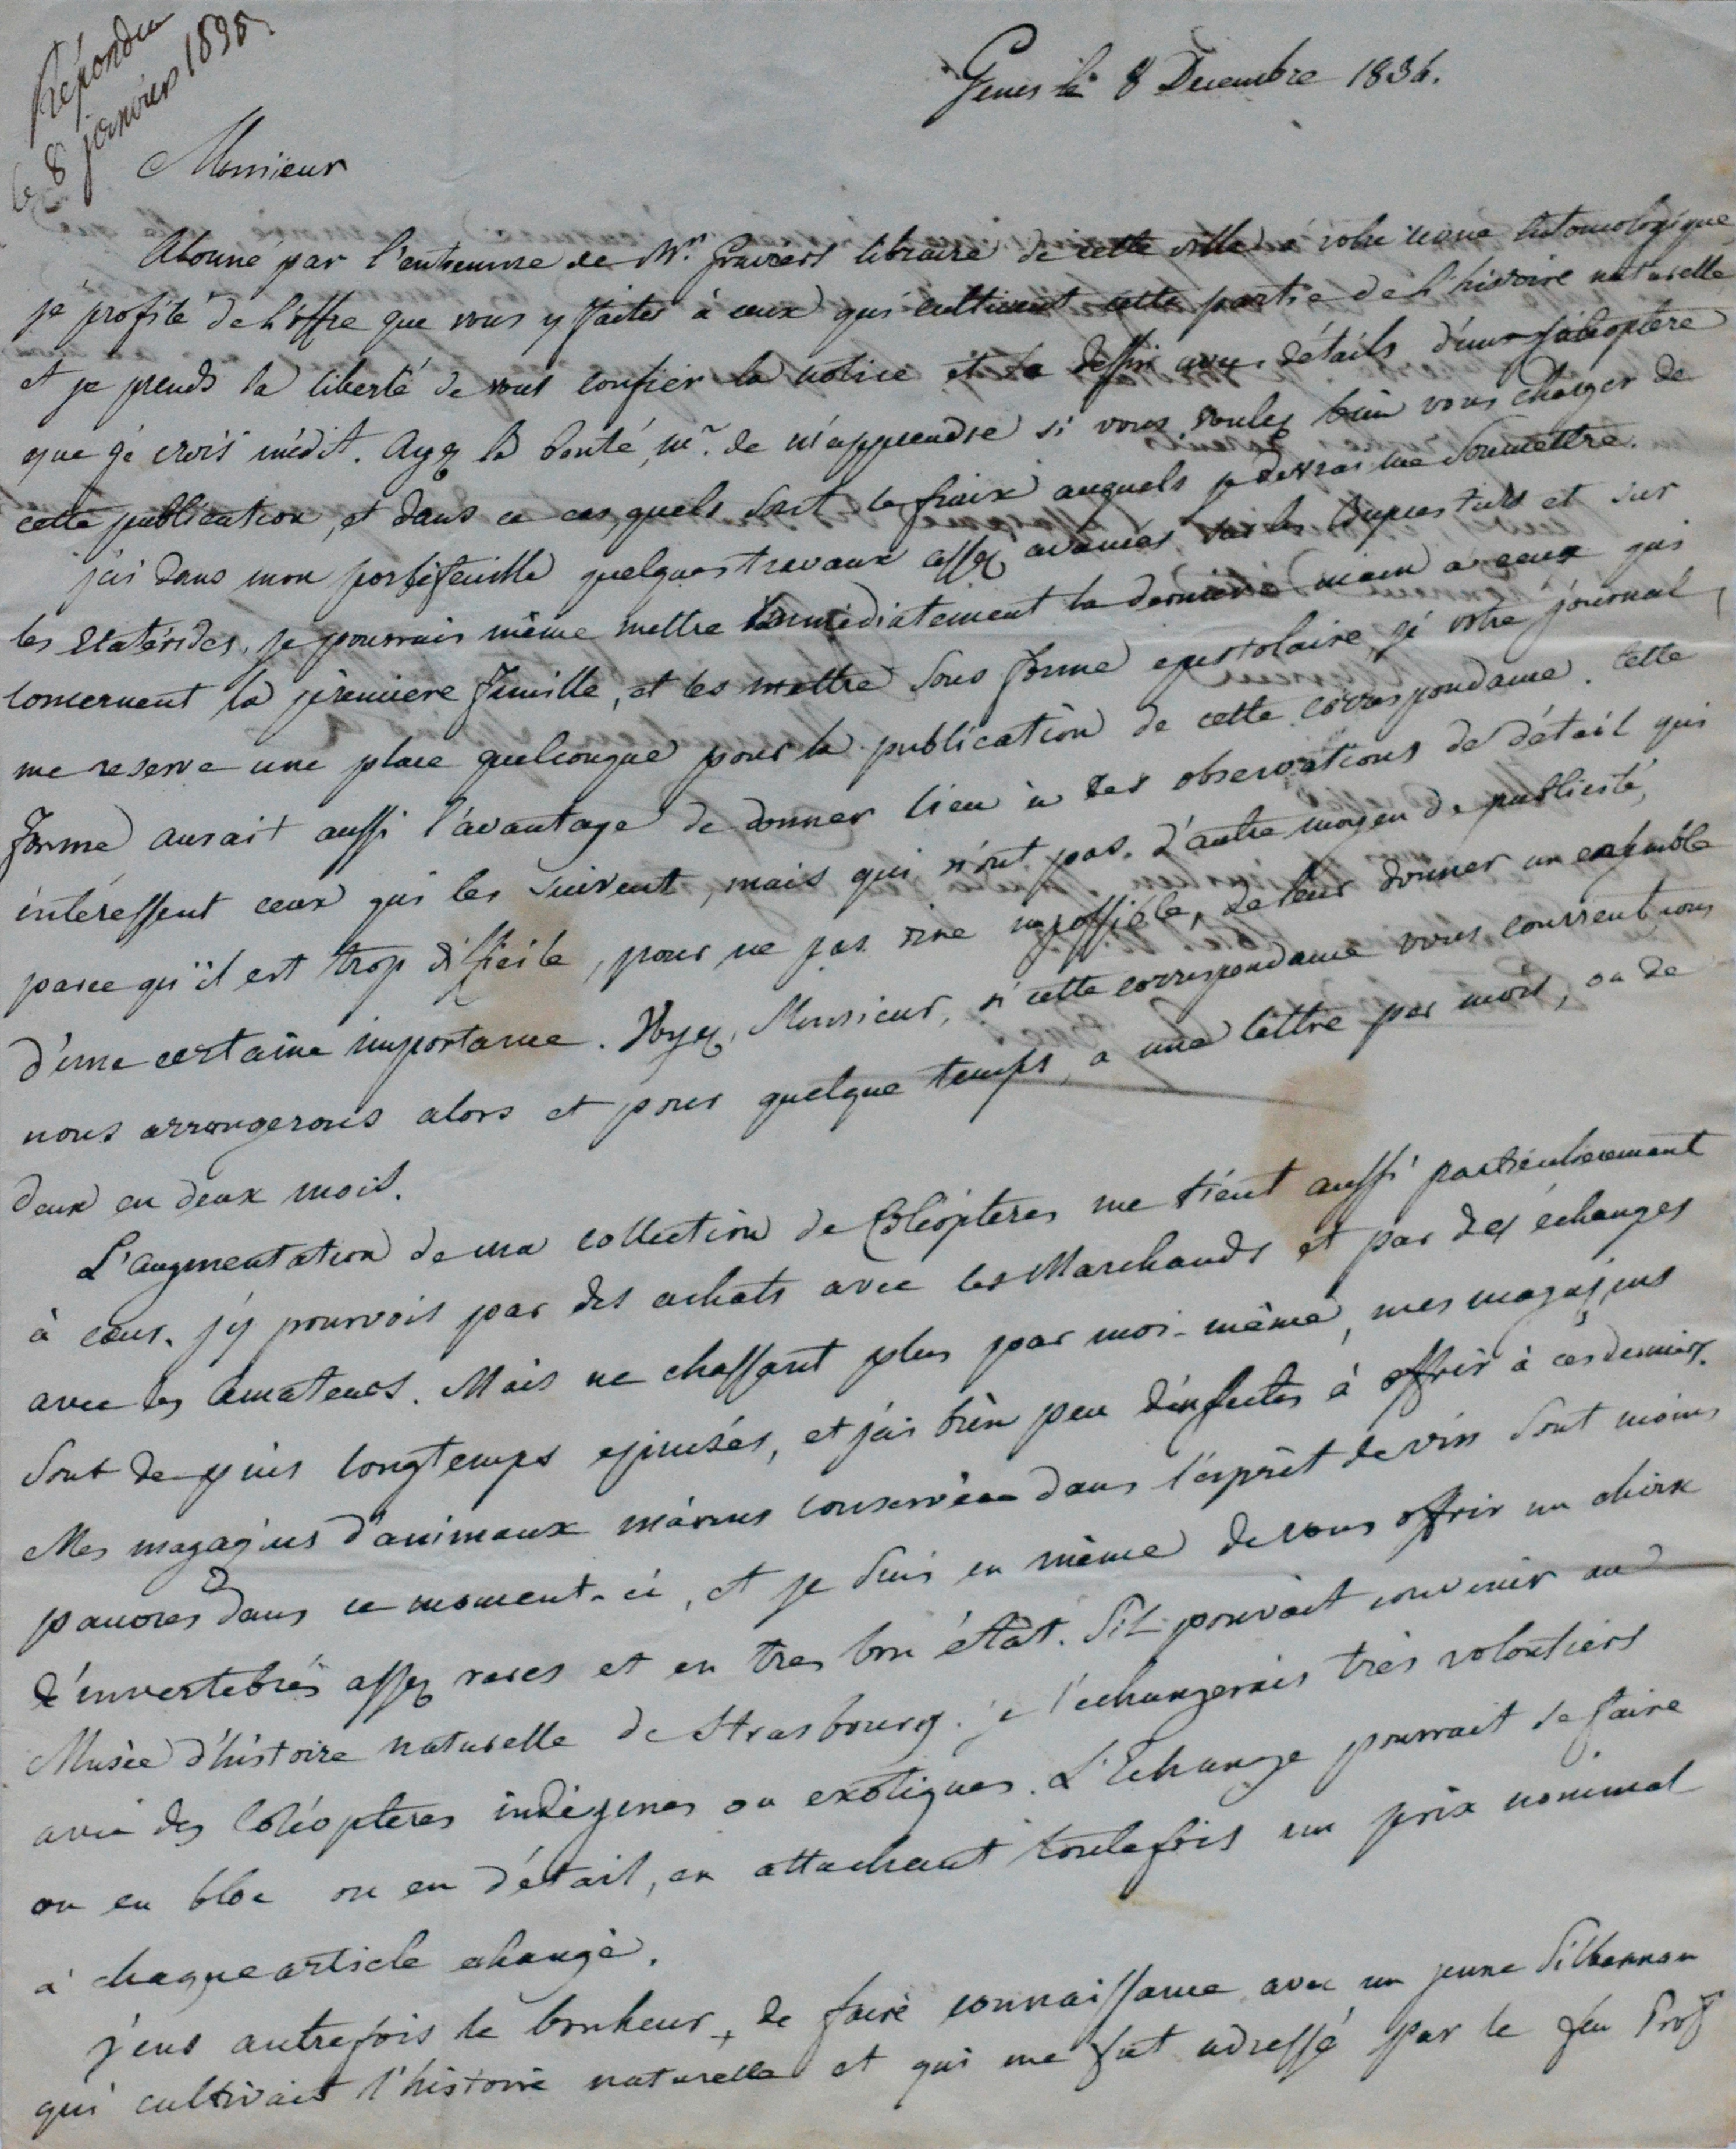 Répondu
le 8 janvier 1835
Genes le 8 Decembre 1834.
Monsieur
Abonné par l'entremise de Mr. Graviers libraire de cette ville à votre revue Entomologique
je profite de l'offre que vous y faites à ceux qui cultivent cette partie de l'histoire naturelle
et je prends la liberté de vous confier la notice et le dessin avec détails d'un Coleoptere
que je crois inédit. Ayez la bonté, mr. de m'apprendre si vous voulez bien vous charger de
cette publication, et dans ce cas quels sont le fraix auquels je devrai me soumettre.
j'ai dans mon portefeuille quelques travaux assez avancés sur les Buprestides et sur
les Elatérides. Je pourrais même mettre immédiatement la dernière main a ceux qui
concernent la premiere famille, et les mettre sous forme epistolaire, si votre journal
me reserve une place quelconque pour la publication de cette correspondance. Cette
forme aurait aussi l'avantage de donner lieu à des observations de détail qui
intéressent ceux qui les suivent, mais qui n'ont pas d'autre moyen de publicité,
parce qu'il est trop difficile, pour ne pas dire impossible, de leur donner un ensemble
d'une certaine importance. Voyez, Monsieur, si cette correspondance vous convient, nous
nous arrangerons alors et pour quelque temps, a une lettre par mois, ou de
deux en deux mois.
L'augmentation de ma collection de Coléopteres me tient aussi particulierement
à cœur. j'y pourvois par des achats avec les Marchands et par des échanges
avec les amateurs. Mais ne chassant plus par moi-même, mes magazins
sont depuis longtemps epuisés, et j'ai bien peu d'insectes à offrir à ces derniers.
Mes magazins d'animaux marins conservés dans l'esprit de vin sont moins
pauvres dans ce moment-ci, et je suis en même de vous offrir un choix
d'invertebrés assez rares et en tres bon état. S'il pouvait convenir au
Musée d'histoire naturelle de Strasbourg. je l'echangerais très volontiers
avec des Coléopteres indigenes ou exotiques. L'Echange pourrait se faire
ou en bloc ou en détail, en attachant toutefois un prix nominal
à chaque article échangé.
j'eus autrefois le bonheur, de faire connaissance avec un jeune Silberman
qui cultivait l'histoire naturelle et qui me fut adressé par le feu Prof